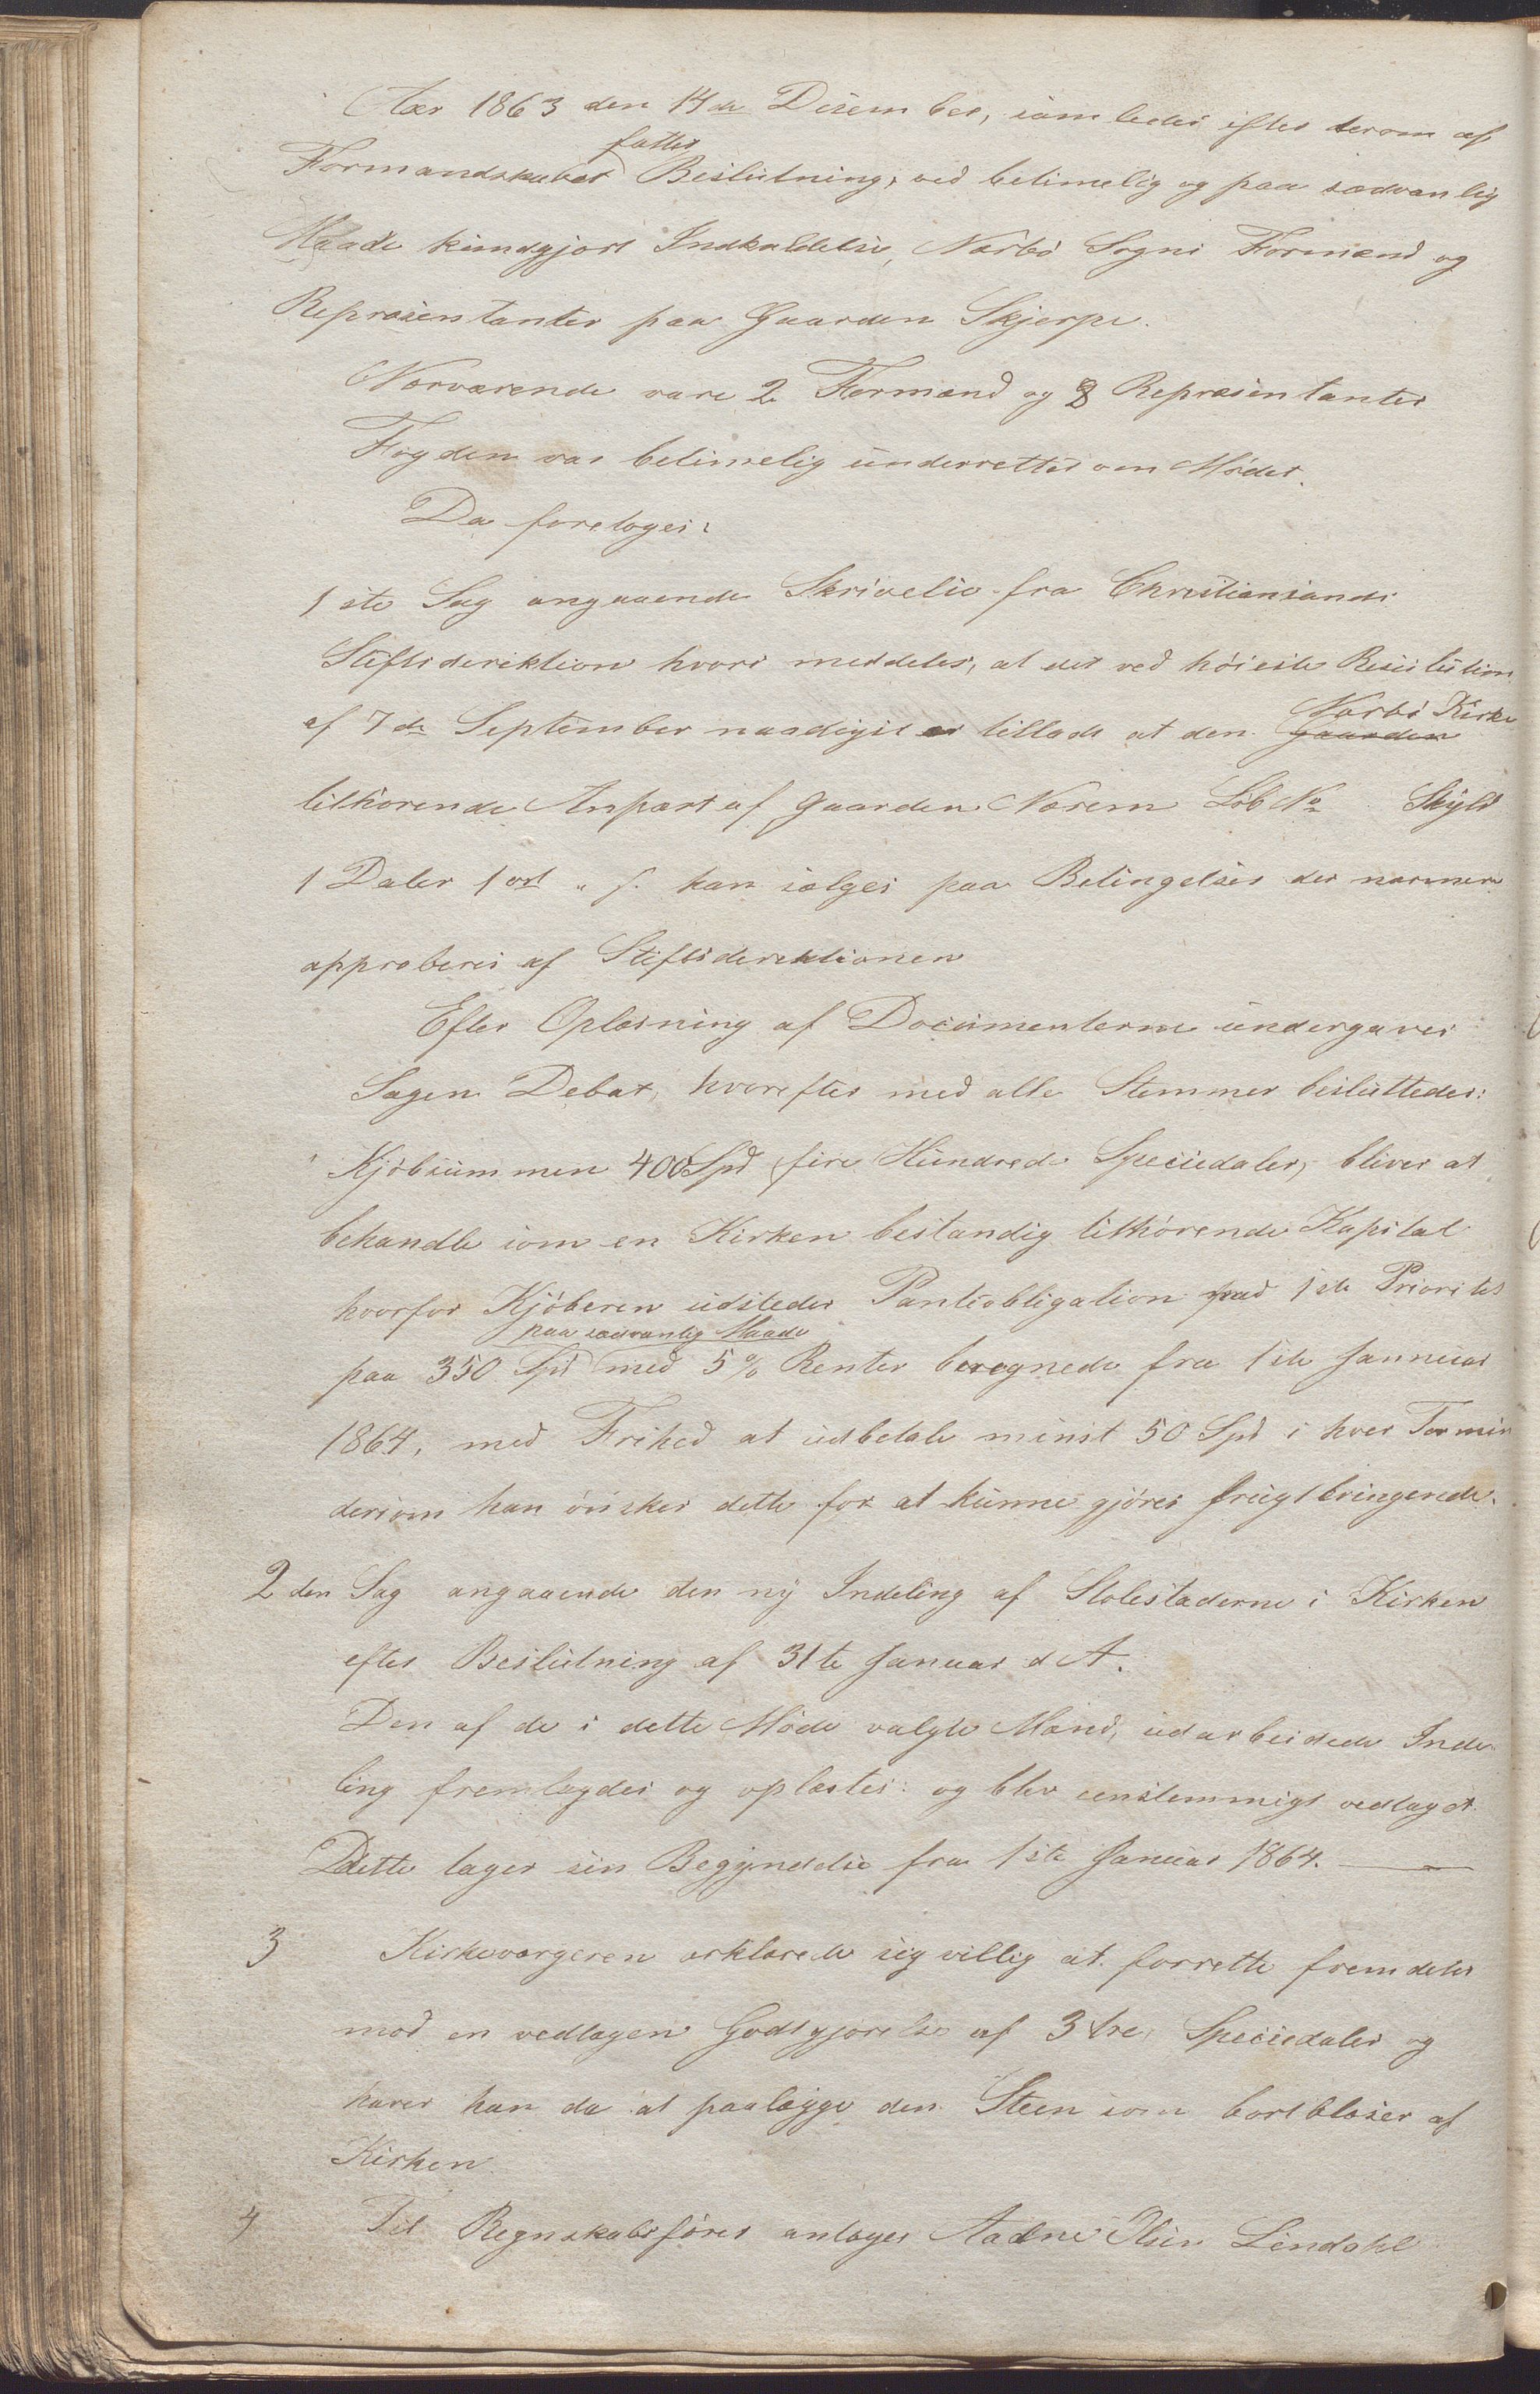 Aar 1863 den 14de Desember, samledes efter derom af
Formandskabet fattet Beslutning, ved betimelig og paa sædvanlig
Maade kundgjort Indkaldelse, Nærbø Sogns Formænd og
Repræsentanter paa Gaarden Skjerpe.
Nærværende vare 2 Formænd og 8 Repræsentanter
Fogden var betimelig underrettet om Mødet.
Da foretoges:
1ste Sag angaaende Skrivelse fra Christiansands
Stiftsdirektion hvori meddeles, at det ved høieste Resolution
af 7de September naadigst er tilladt at den Nærbø Kirke
tilhørende Anpart af Gaarden Nærem Løb No Skyld
1 Daler 1 ort " s. kan sælges paa Betingelser der nærmere
approberes af Stiftsdirektionen
Efter Oplæsning af Documenterne undergaves
Sagen Debat, hvorefter med alle Stemmer besluttedes:
Kjøbsummen 400 Spd fire Hundrede Speciedaler, bliver at
behandle som en Kirken bestandig tilhørende Kapital
hvorfor Kjøberen udsteder Pantiobligation med 1ste Prioritet
paa sædvanlig Maade
paa 350 Spd med 5 % Renter beregnede fra 1ste Januar
1864, med Frihed at udbetale minst 50 Spd i hver Termin
dersom han ønsker dette for at kunne gjøres frugtbringende.
2den Sag angaaende den ny Indeling af Stolestaderne i Kirken
efter Beslutning af 31te Januar d A.
Den af de i dette Møde valgte Mænd, udarbeidede Inde-
ling fremlagdes og oplæstes: og blev eenstemmigt vedtaget.
Dette tager sin Begyndelse fra 1ste Januar 1864.
3 Kirkeværgeren erklærede sig villig at forrette fremdeles
mod en vedtagen Godtgjørelse af 3 tre, Speciedaler og
haver han da at paalægge den Steen som bortblæser af
Kirken.
4 Til Regnskabsfører antoges Aadne Olsen Lendahl